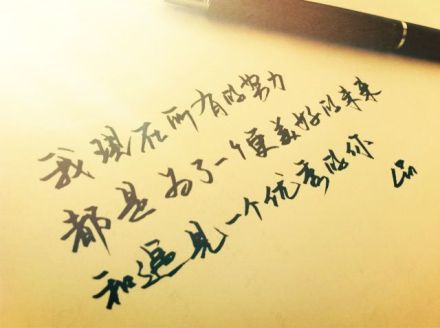 我现在所有的努力
都是为了一个更美好的未来
和遇见一个优秀的你
Lin